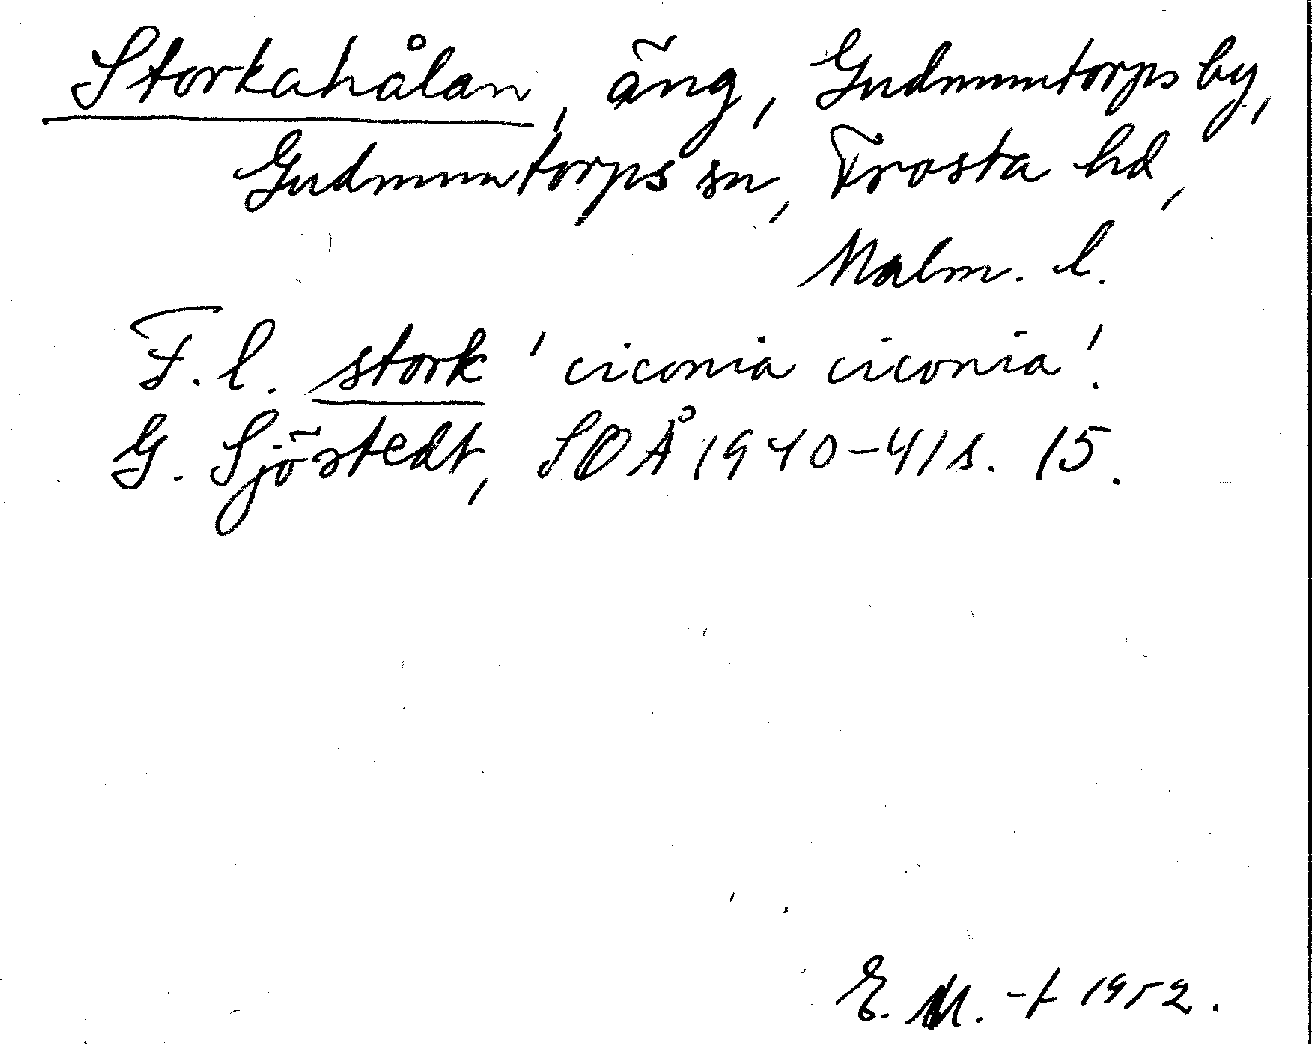 Storkahålan, äng, Gudmuntorps by,
Gudmuntorps sn, Frosta hd,
Malm. l.
F. l. stork 'ciconia ciconia'.
G. Sjöstedt, SOÅ 1940-41 s. 15.
E. M. -t 1952.